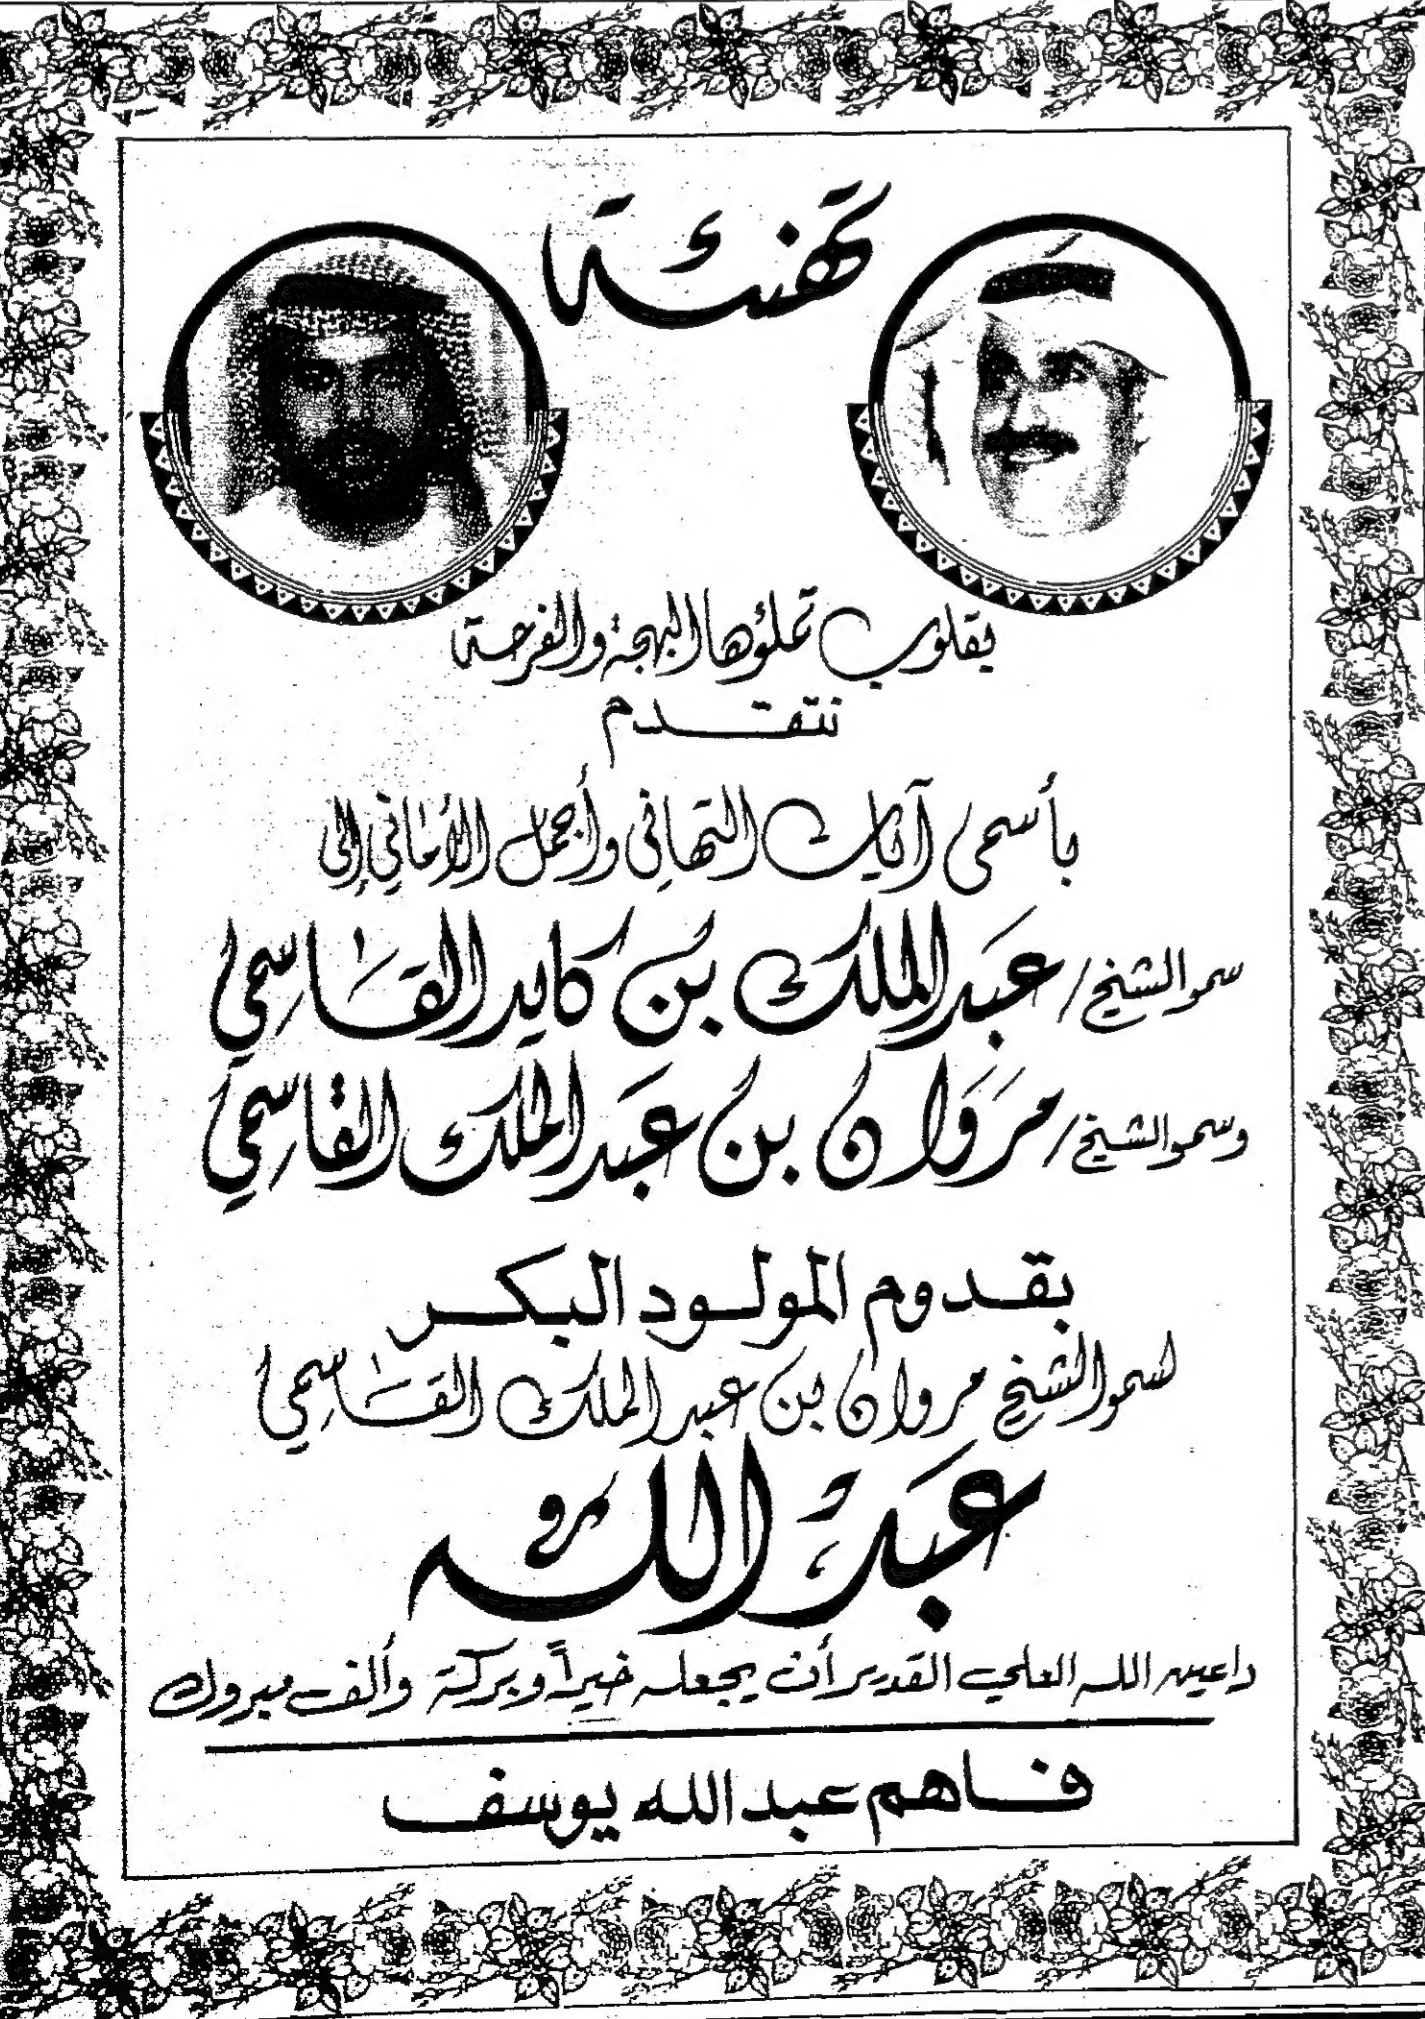 تهنئة
بقلوب تملؤها البهجة والفرحة
نتقدم
بأسمى آيات التهاني وأجمل الأماني إلى
سمو الشيخ / عبد الملك بن كايد القاسمي
وسمو الشيخ / مروان بن عبد الملك القاسمي
بقدوم المولود البكر
لسمو الشيخ مروان بن عبد الملك القاسمي
عبد الله
داعين الله العلي القدير أن يجعله خيراً وبركة وألف مبروك
فاهم عبد الله يوسف